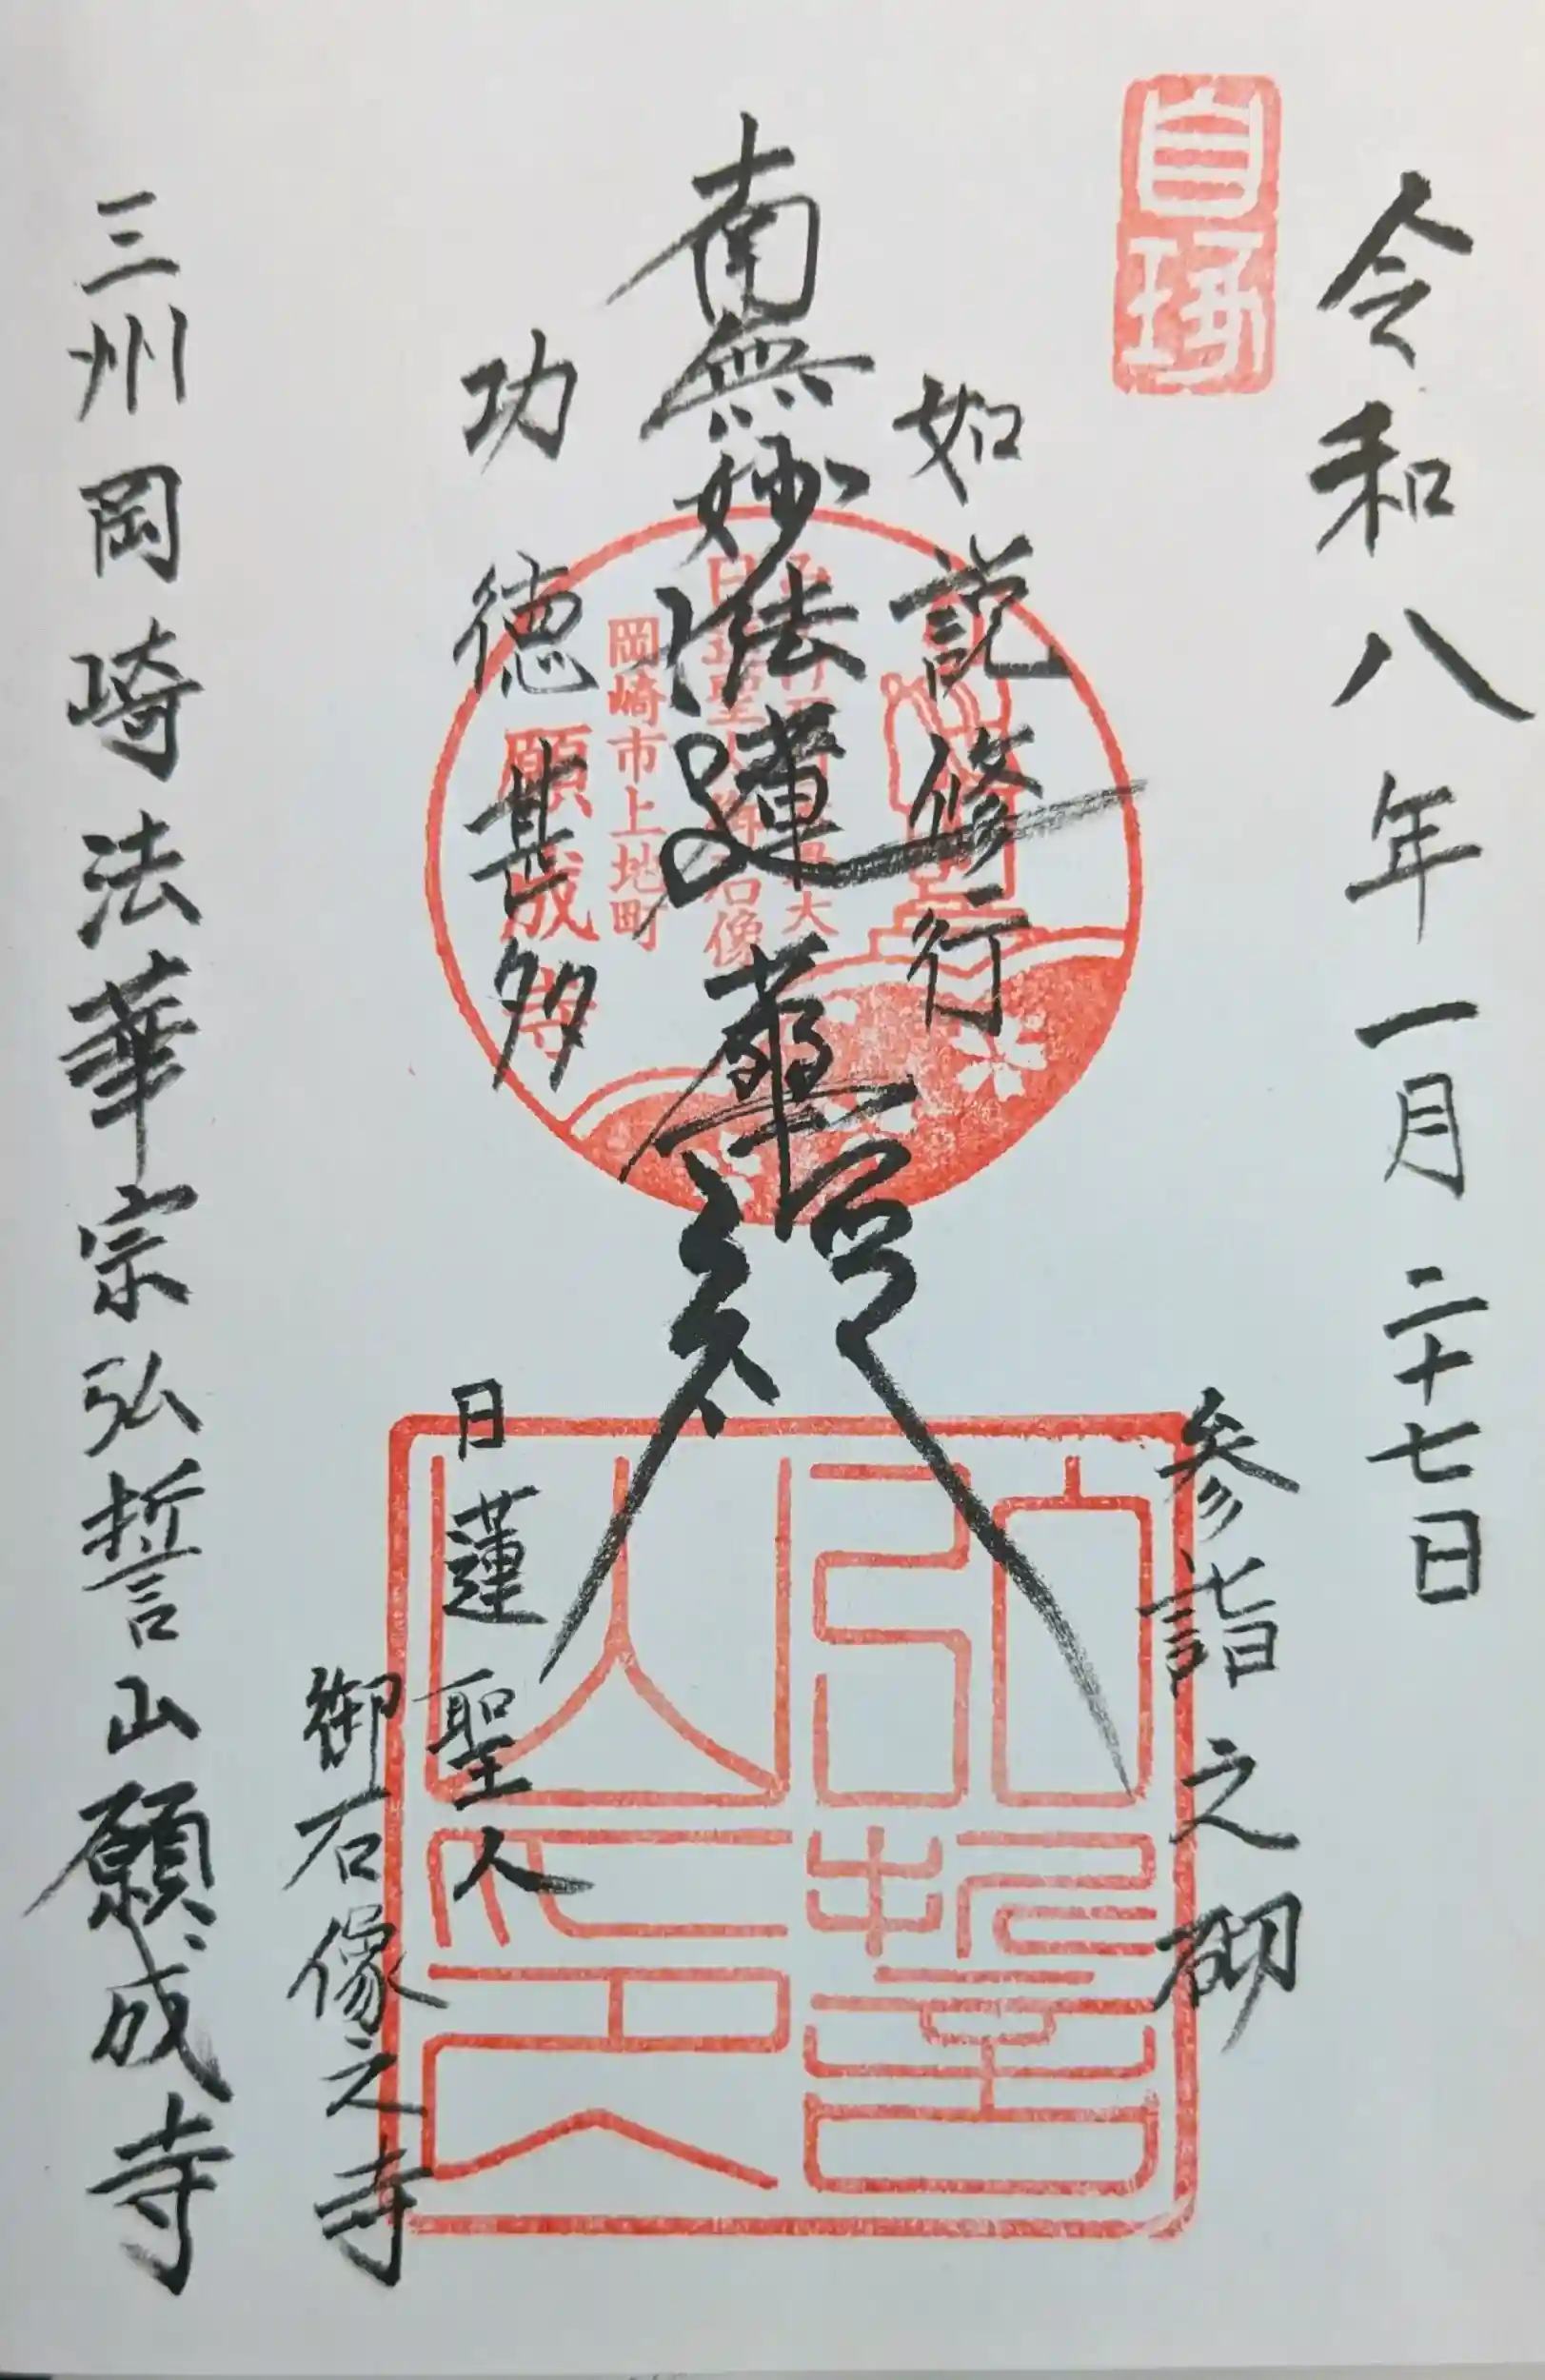 令和八年一月二十七日
参詣之砌
如説修行
南無妙法蓮華経
功徳甚多
日蓮聖人御石像
岡崎市上地町
願成寺
日蓮聖人
御石像之寺
三州岡崎法華宗弘誓山願成寺